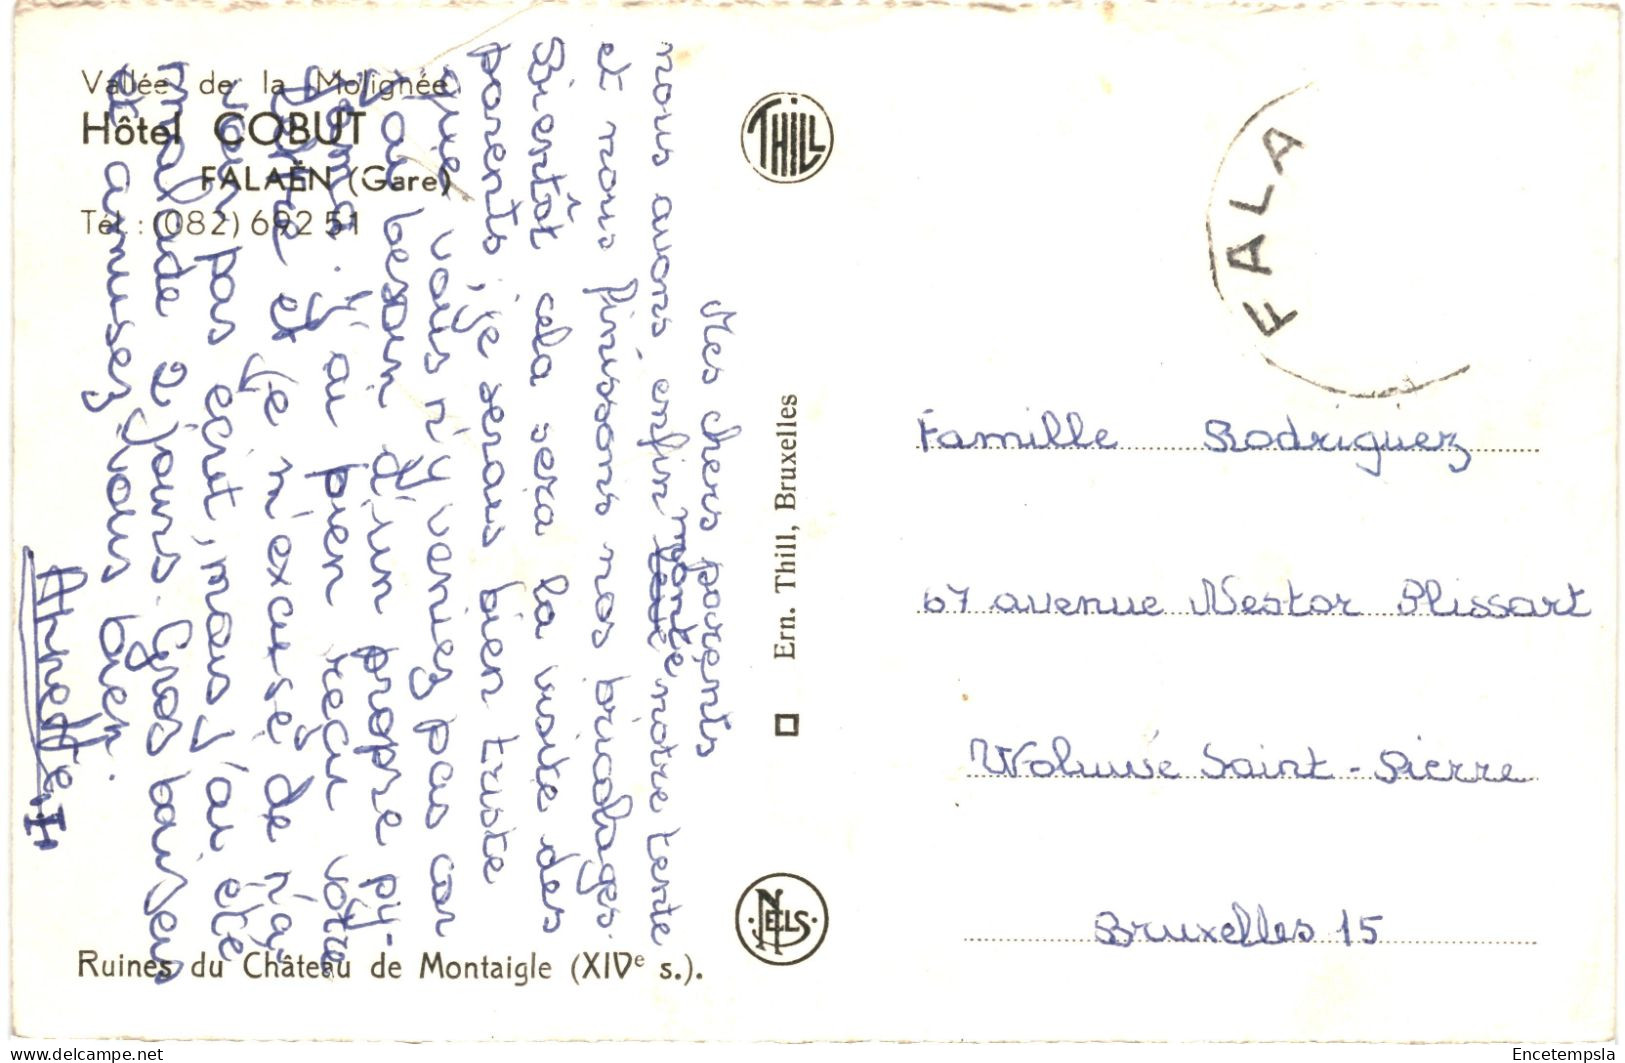 Vallée de la Molignée
Hôtel COBUT
FALAËN (Gare)
Tél. : (082) 692 51
Mes chers parents
nous avons enfin monté notre tente
et nous finissons nos bricolages.
Bientôt cela sera la visite des
parents, je serais bien triste
que vous n'y veniez pas car
j'ai besoin d'un propre py-
jama. J'ai bien reçu votre
lettre et je m'excuse de n'a-
voir pas écrit, mais j'ai été
malade 2 jours. Gros baisers
et amusez vous bien.
Annette
Ruines du Château de Montaigle (XIVe s.).
THILL
Ern. Thill, Bruxelles
NELS
FALA
Famille Rodriguez
67 avenue Nestor Plissart
Woluwé Saint-Pierre
Bruxelles 15
Encetempsla